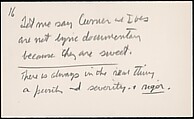 16
Let me say Currier and Ives
are not lyric documentary
because they are sweet.
There is always in the real thing
a purity and severity, a rigor.